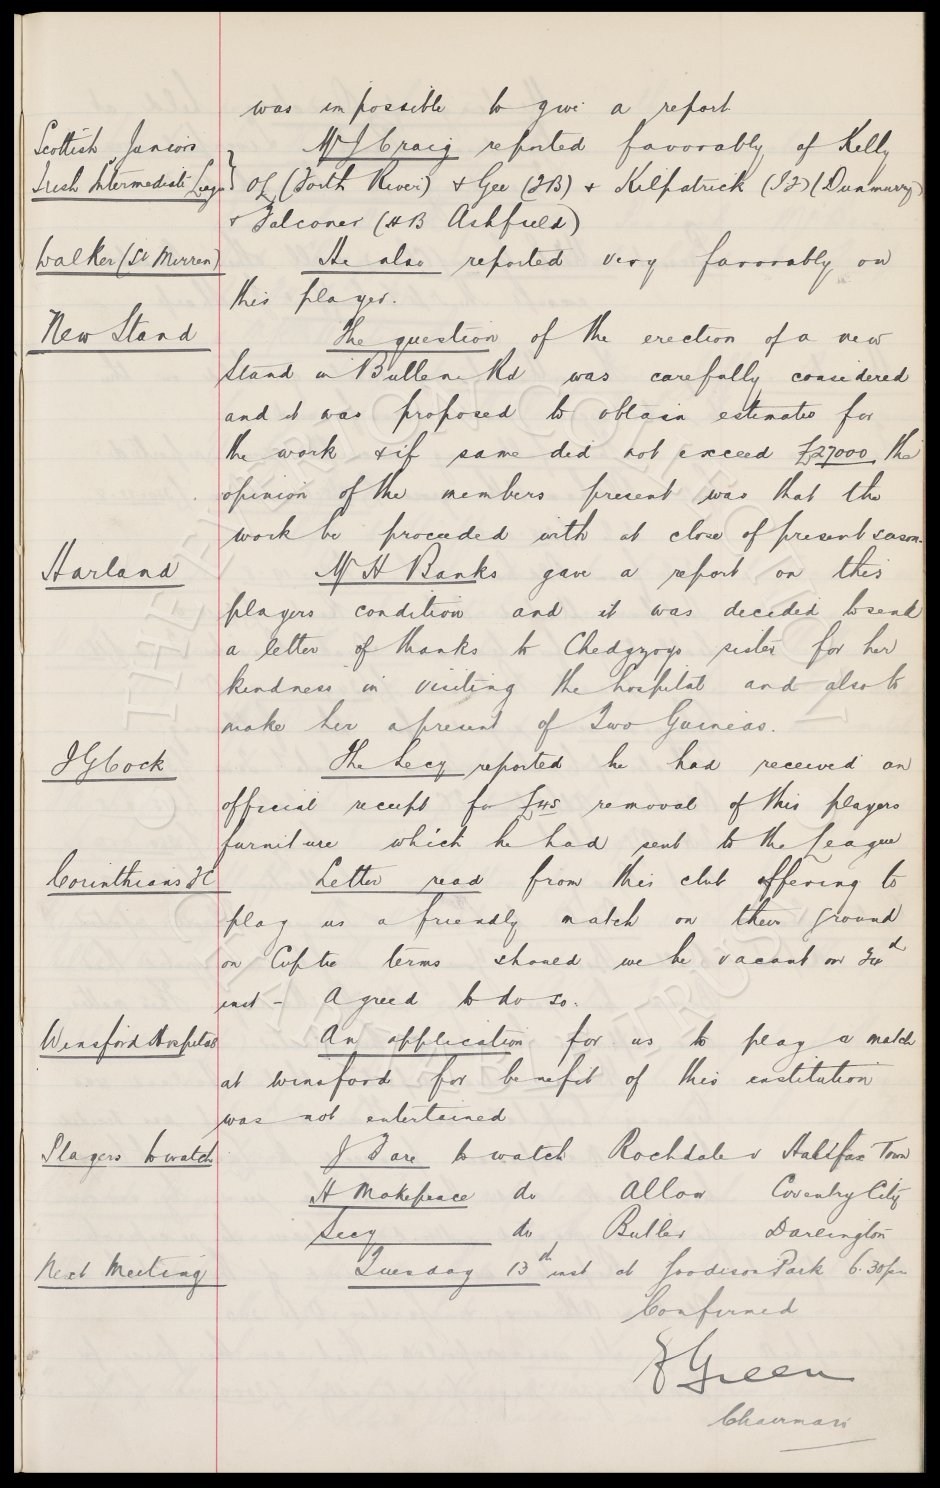 was impossible to give a report
Scottish Juniors
Irish Intermediate League
Mr J Craig reported favorably of Kelly
OL (Forth River) & Gee (FB) & Kilpatrick (IF) (Dunmurry)
& Falconer (HB Ashfield)
Walker (St Mirren)
He also reported very favorably on
this player.
New Stand
The question of the erection of a new
Stand in Bullens Rd was carefully considered
and it was proposed to obtain estimates for
the work & if same did not exceed £27000 the
opinion of the members present was that the
work be proceeded with at close of present season.
Harland
Mr H Banks gave a report on this
players condition and it was decided to send
a letter of thanks to Chedgzoys sister for her
kindness in visiting the hospital and also to
make her a present of Two Guineas.
J G Cock
The Secy reported he had received an
official receipt for £45 removal of this players
furniture which he had sent to the League
Corinthians FC
Letter read from this club offering to
play us a friendly match on their ground
on Cup tie terms should we be vacant on
inst - Agreed to do so.
Winsford Hospital
An application for us to play a match
at Winsford for benefit of this institution
was not entertained
Players to watch
J Fare to watch Rochdale v Halifax Town
H Makepeace do Allon Coventry City
Secy do Butler Darlington
Next Meeting
Tuesday 13th inst at Goodison Park 6.30pm
Confirmed
Green
Chairman
THE EVERTON COLLECTION
CHARITABLE TRUST